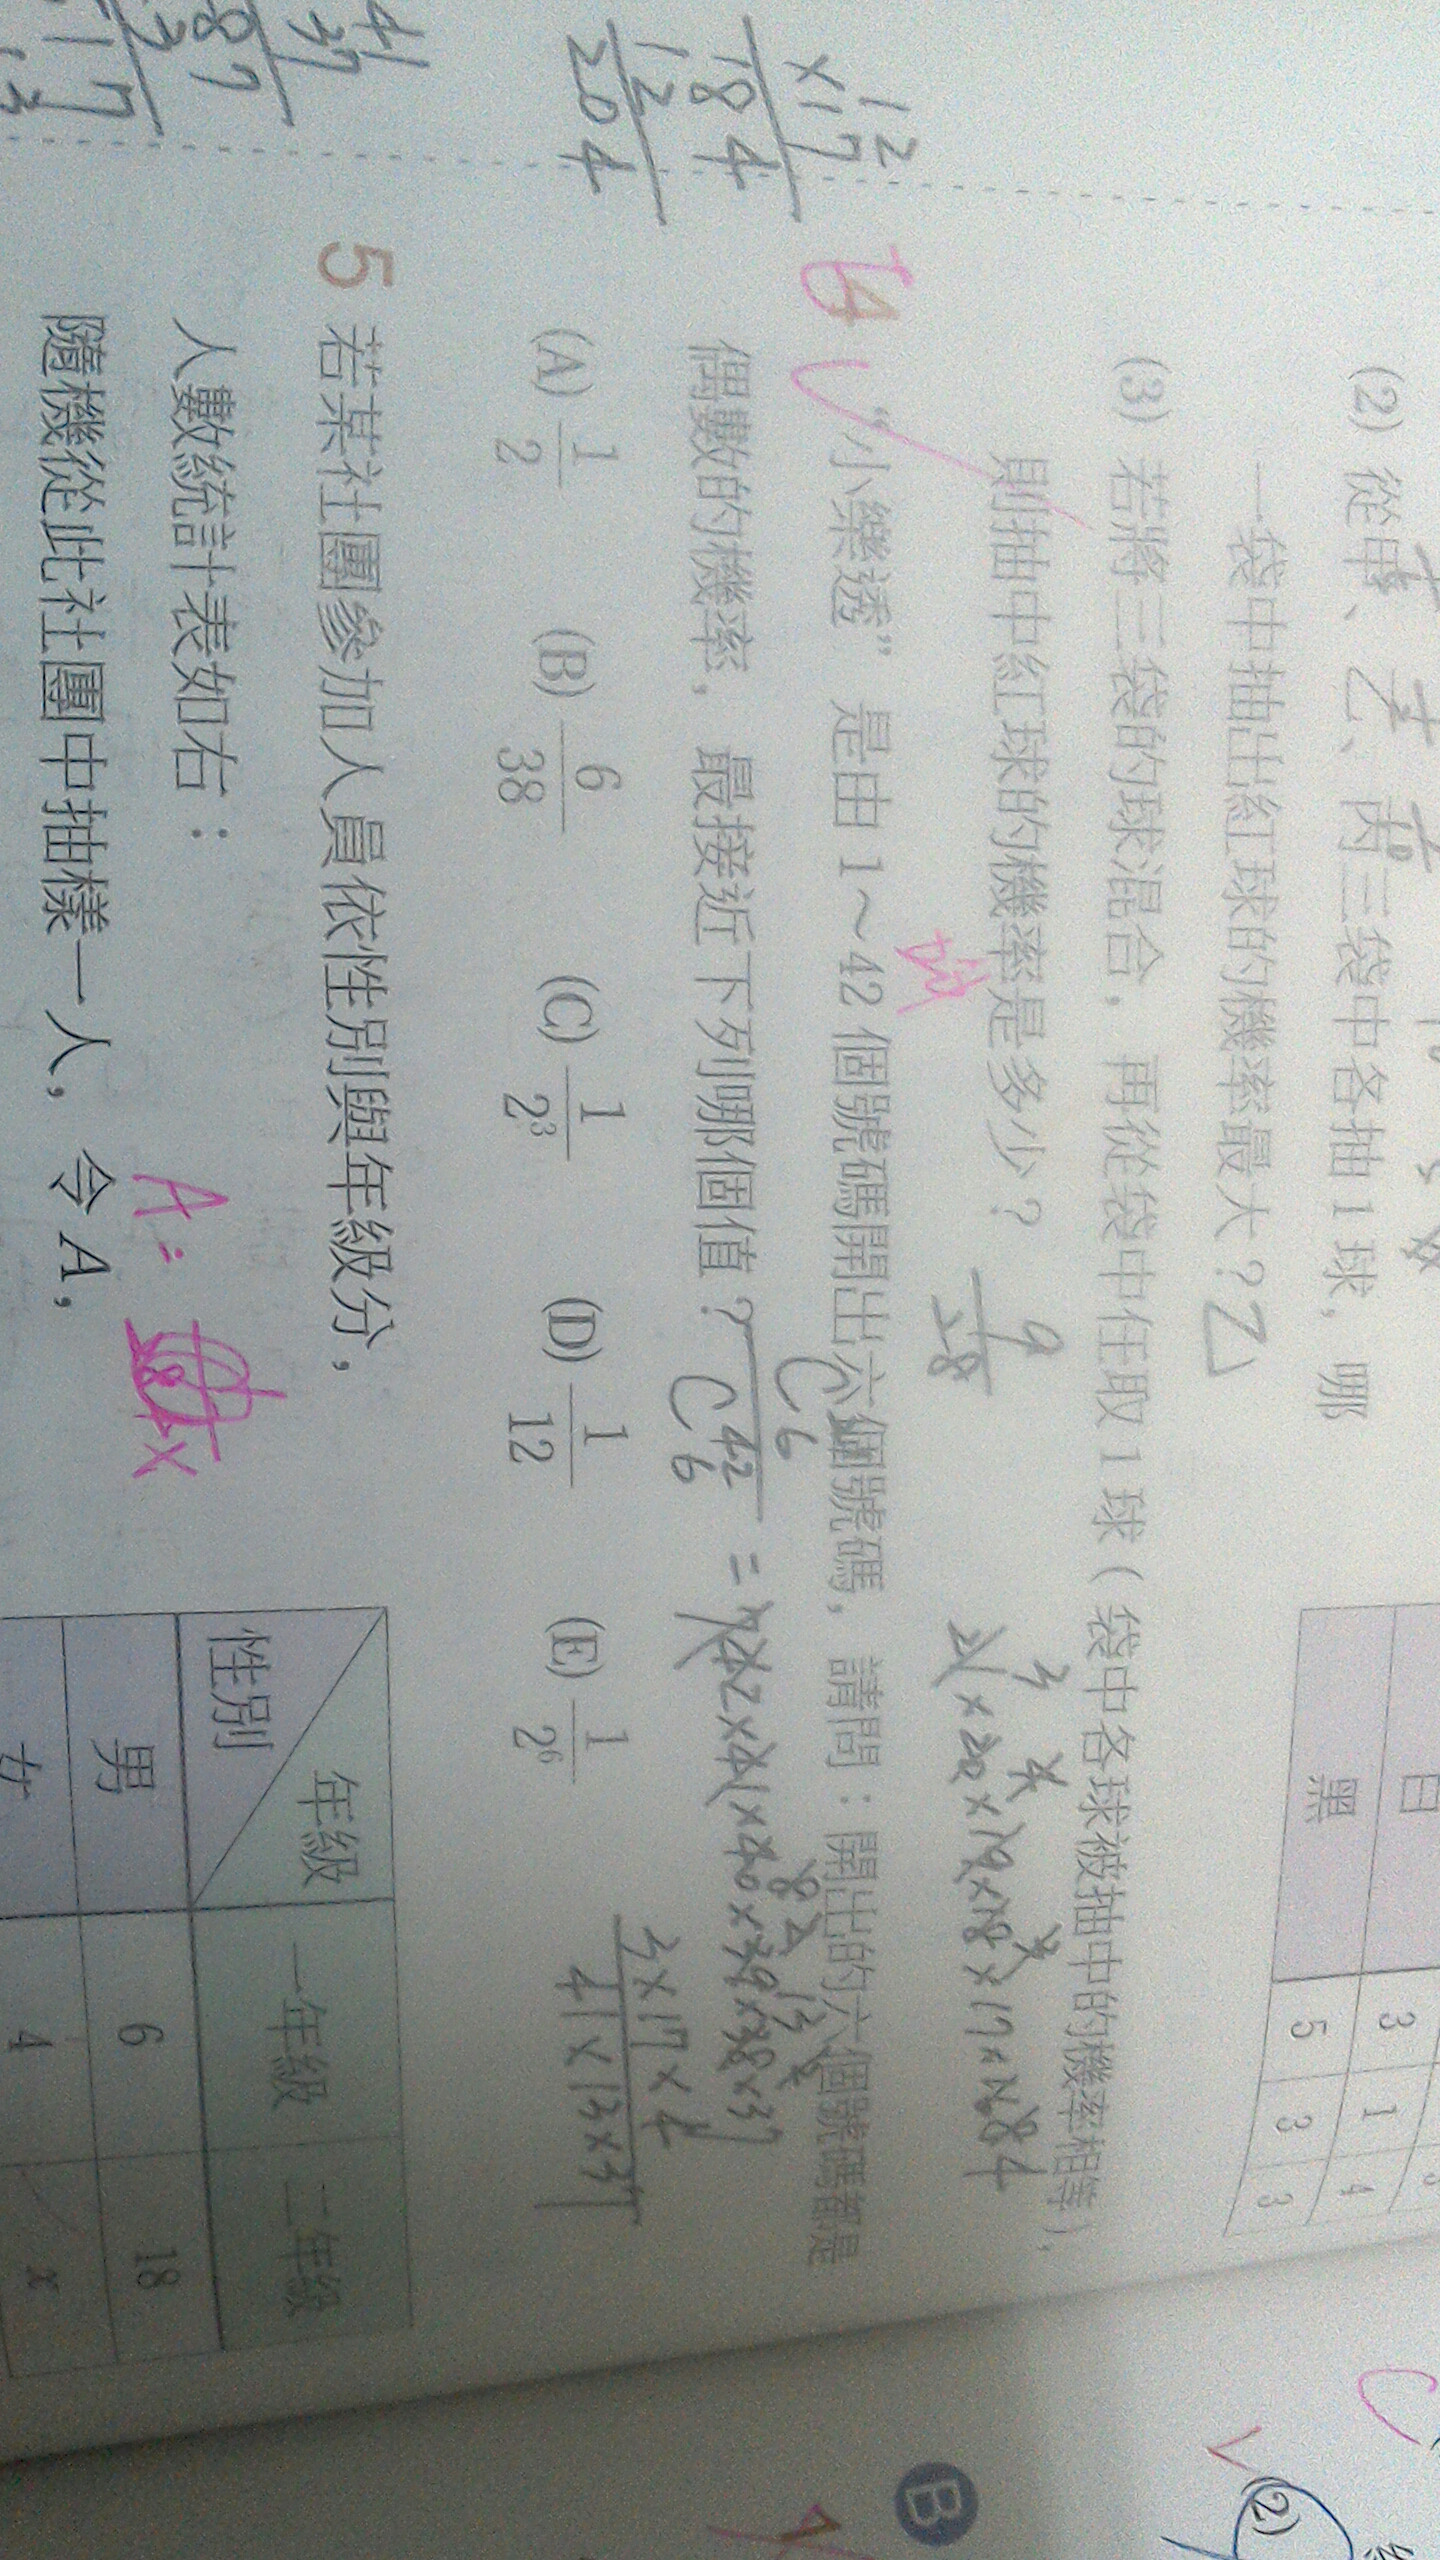 (2) 從甲、乙、丙三袋中各抽 1 球，哪
一袋中抽出紅球的機率最大？乙
(3) 若將三袋的球混合，再從袋中任取 1 球（袋中各球被抽中的機率相等），
則抽中紅球的機率是多少？
白 3 1
黑 5 3 3
4 “小樂透” 是由 1～42 個號碼開出六個號碼，請問：開出的六個號碼都是
偶數的機率，最接近下列哪個值？
(A) 1/2 (B) 6/38 (C) 1/2³ (D) 1/12 (E) 1/2⁶
3×17×4
41×13×37
12
×17
84
12
204
5 若某社團參加人員依性別與年級分，
人數統計表如右：
隨機從此社團中抽樣一人，令 A，
A：
性別 年級 一年級 二年級
男 6 18
女 4 x
B
(2)